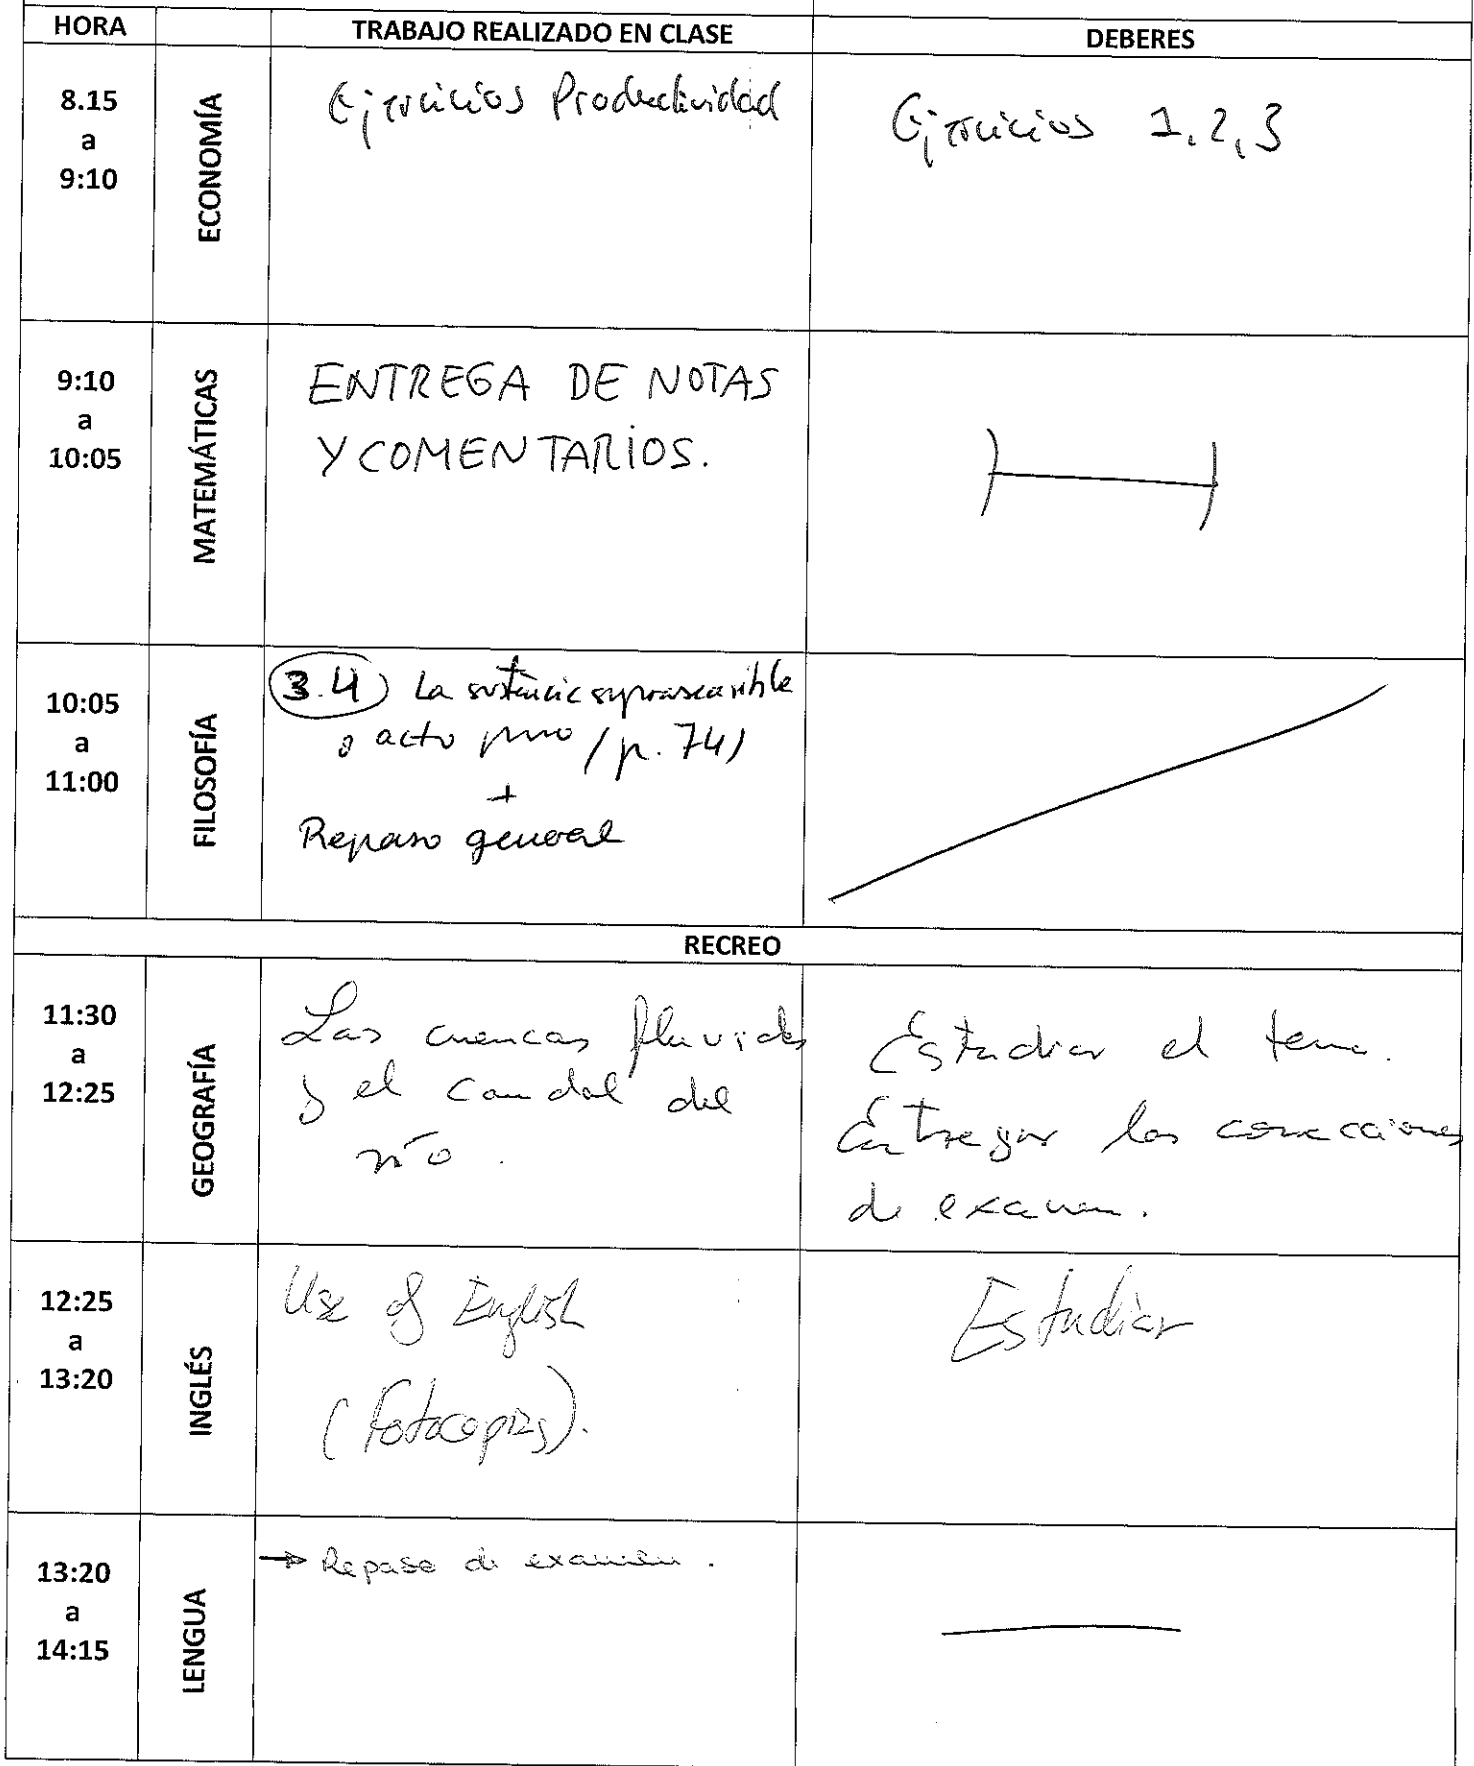 HORA TRABAJO REALIZADO EN CLASE DEBERES
8.15
a
9:10
ECONOMÍA
Ejercicios Productividad
Ejercicios 1, 2, 3
9:10
a
10:05
MATEMÁTICAS
ENTREGA DE NOTAS
Y COMENTARIOS.
10:05
a
11:00
FILOSOFÍA
3.4) La sustancia suprasensible
o acto puro (p. 74)
+
Repaso general
RECREO
11:30
a
12:25
GEOGRAFÍA
Las cuencas fluviales
y el caudal del
río.
Estudiar el tema.
Entregar las correcciones
de examen.
12:25
a
13:20
INGLÉS
Use of English
(Fotocopias).
Estudiar
13:20
a
14:15
LENGUA
→ Repaso de examen.